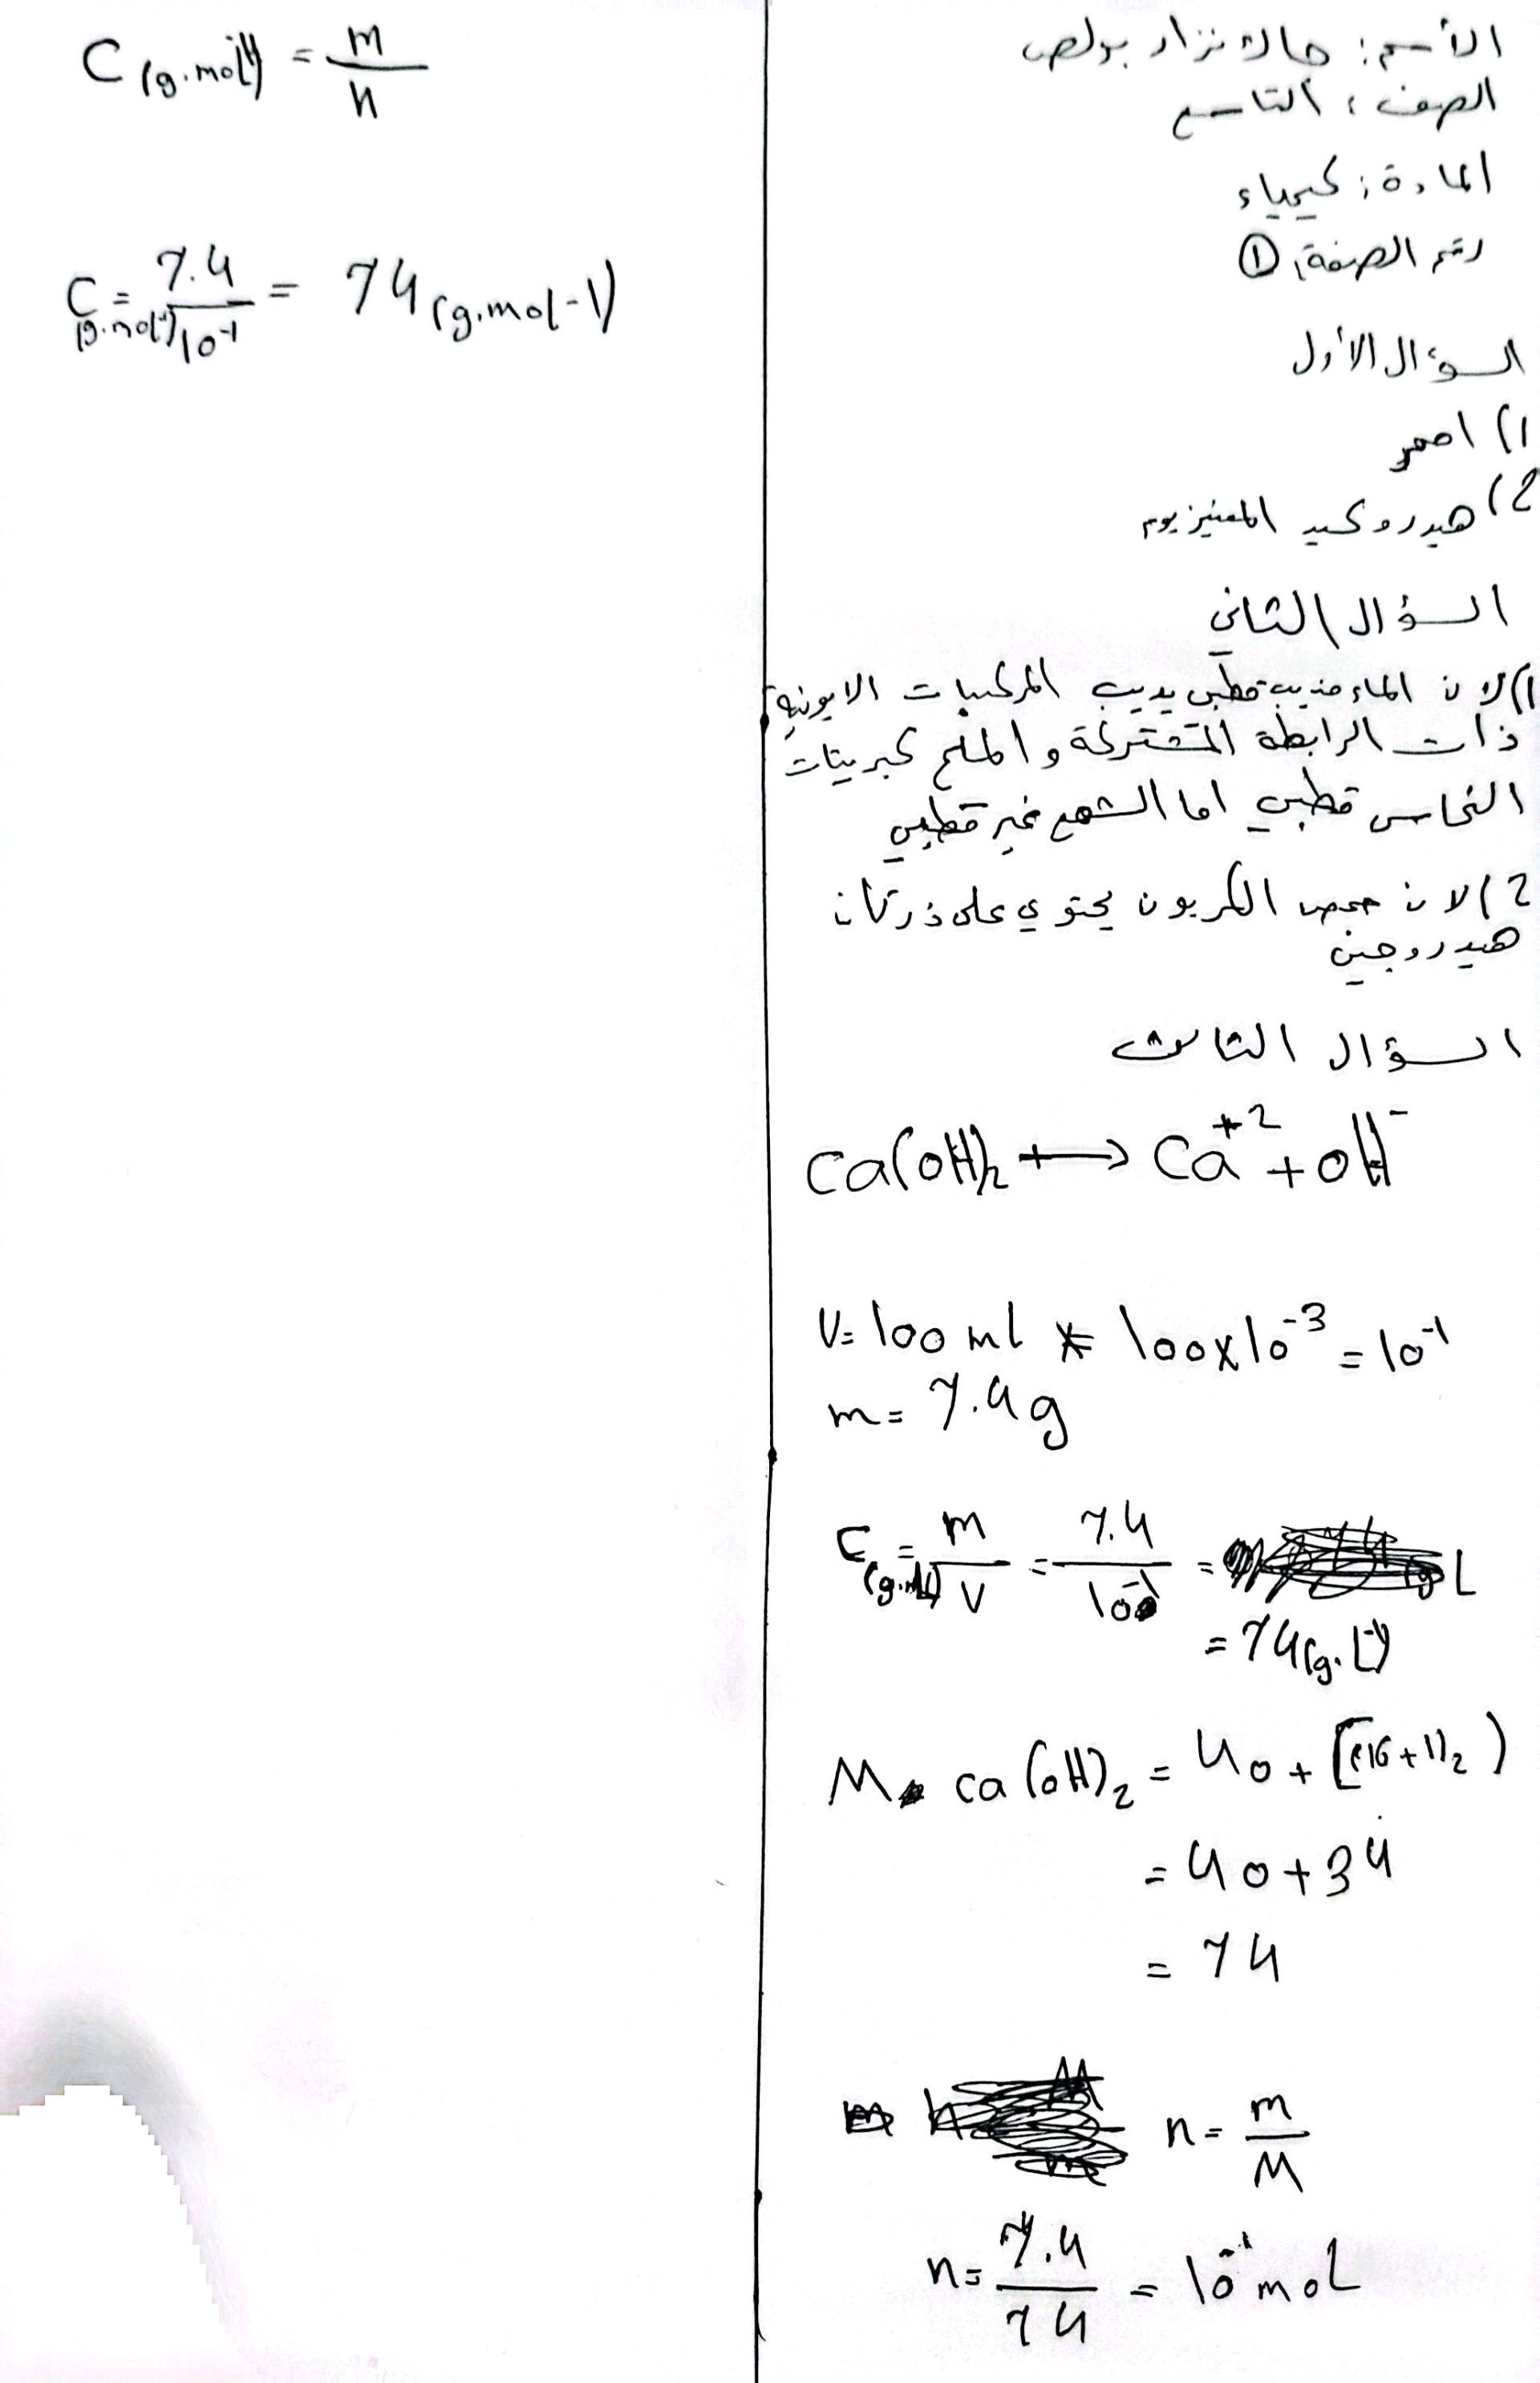 الأسم: جاك نزار بولص
الصف: التاسع
المادة: كيمياء
رقم الصفحة: ①
السؤال الأول
1) احمر
2) هيدروكسيد المغنيزيوم
السؤال الثاني
1) لان الماء مذيب قطبي يذيب المركبات الايونية
ذات الرابطة المشتركة و الملح كبريتات
النحاس قطبي اما الشمع غير قطبي
2) لان حمض الكربون يحتوي على ذرتان
هيدروجين
السؤال الثالث
Ca(OH)₂ ⟶ Ca⁺² + OH⁻
V= 100 ml * 100x10⁻³ = 10⁻¹
m= 7.4g
C(g.L⁻¹) = m/V = 7.4/10⁻¹ = L
= 74(g.L⁻¹)
M Ca(OH)₂ = 40 + [(16+1)2)
= 40+34
= 74
n= m/M
n= 7.4/74 = 10⁻¹ moL
C(g.mol⁻¹) = m/n
C(g.mol⁻¹) = 7.4/10⁻¹ = 74(g.mol-1)